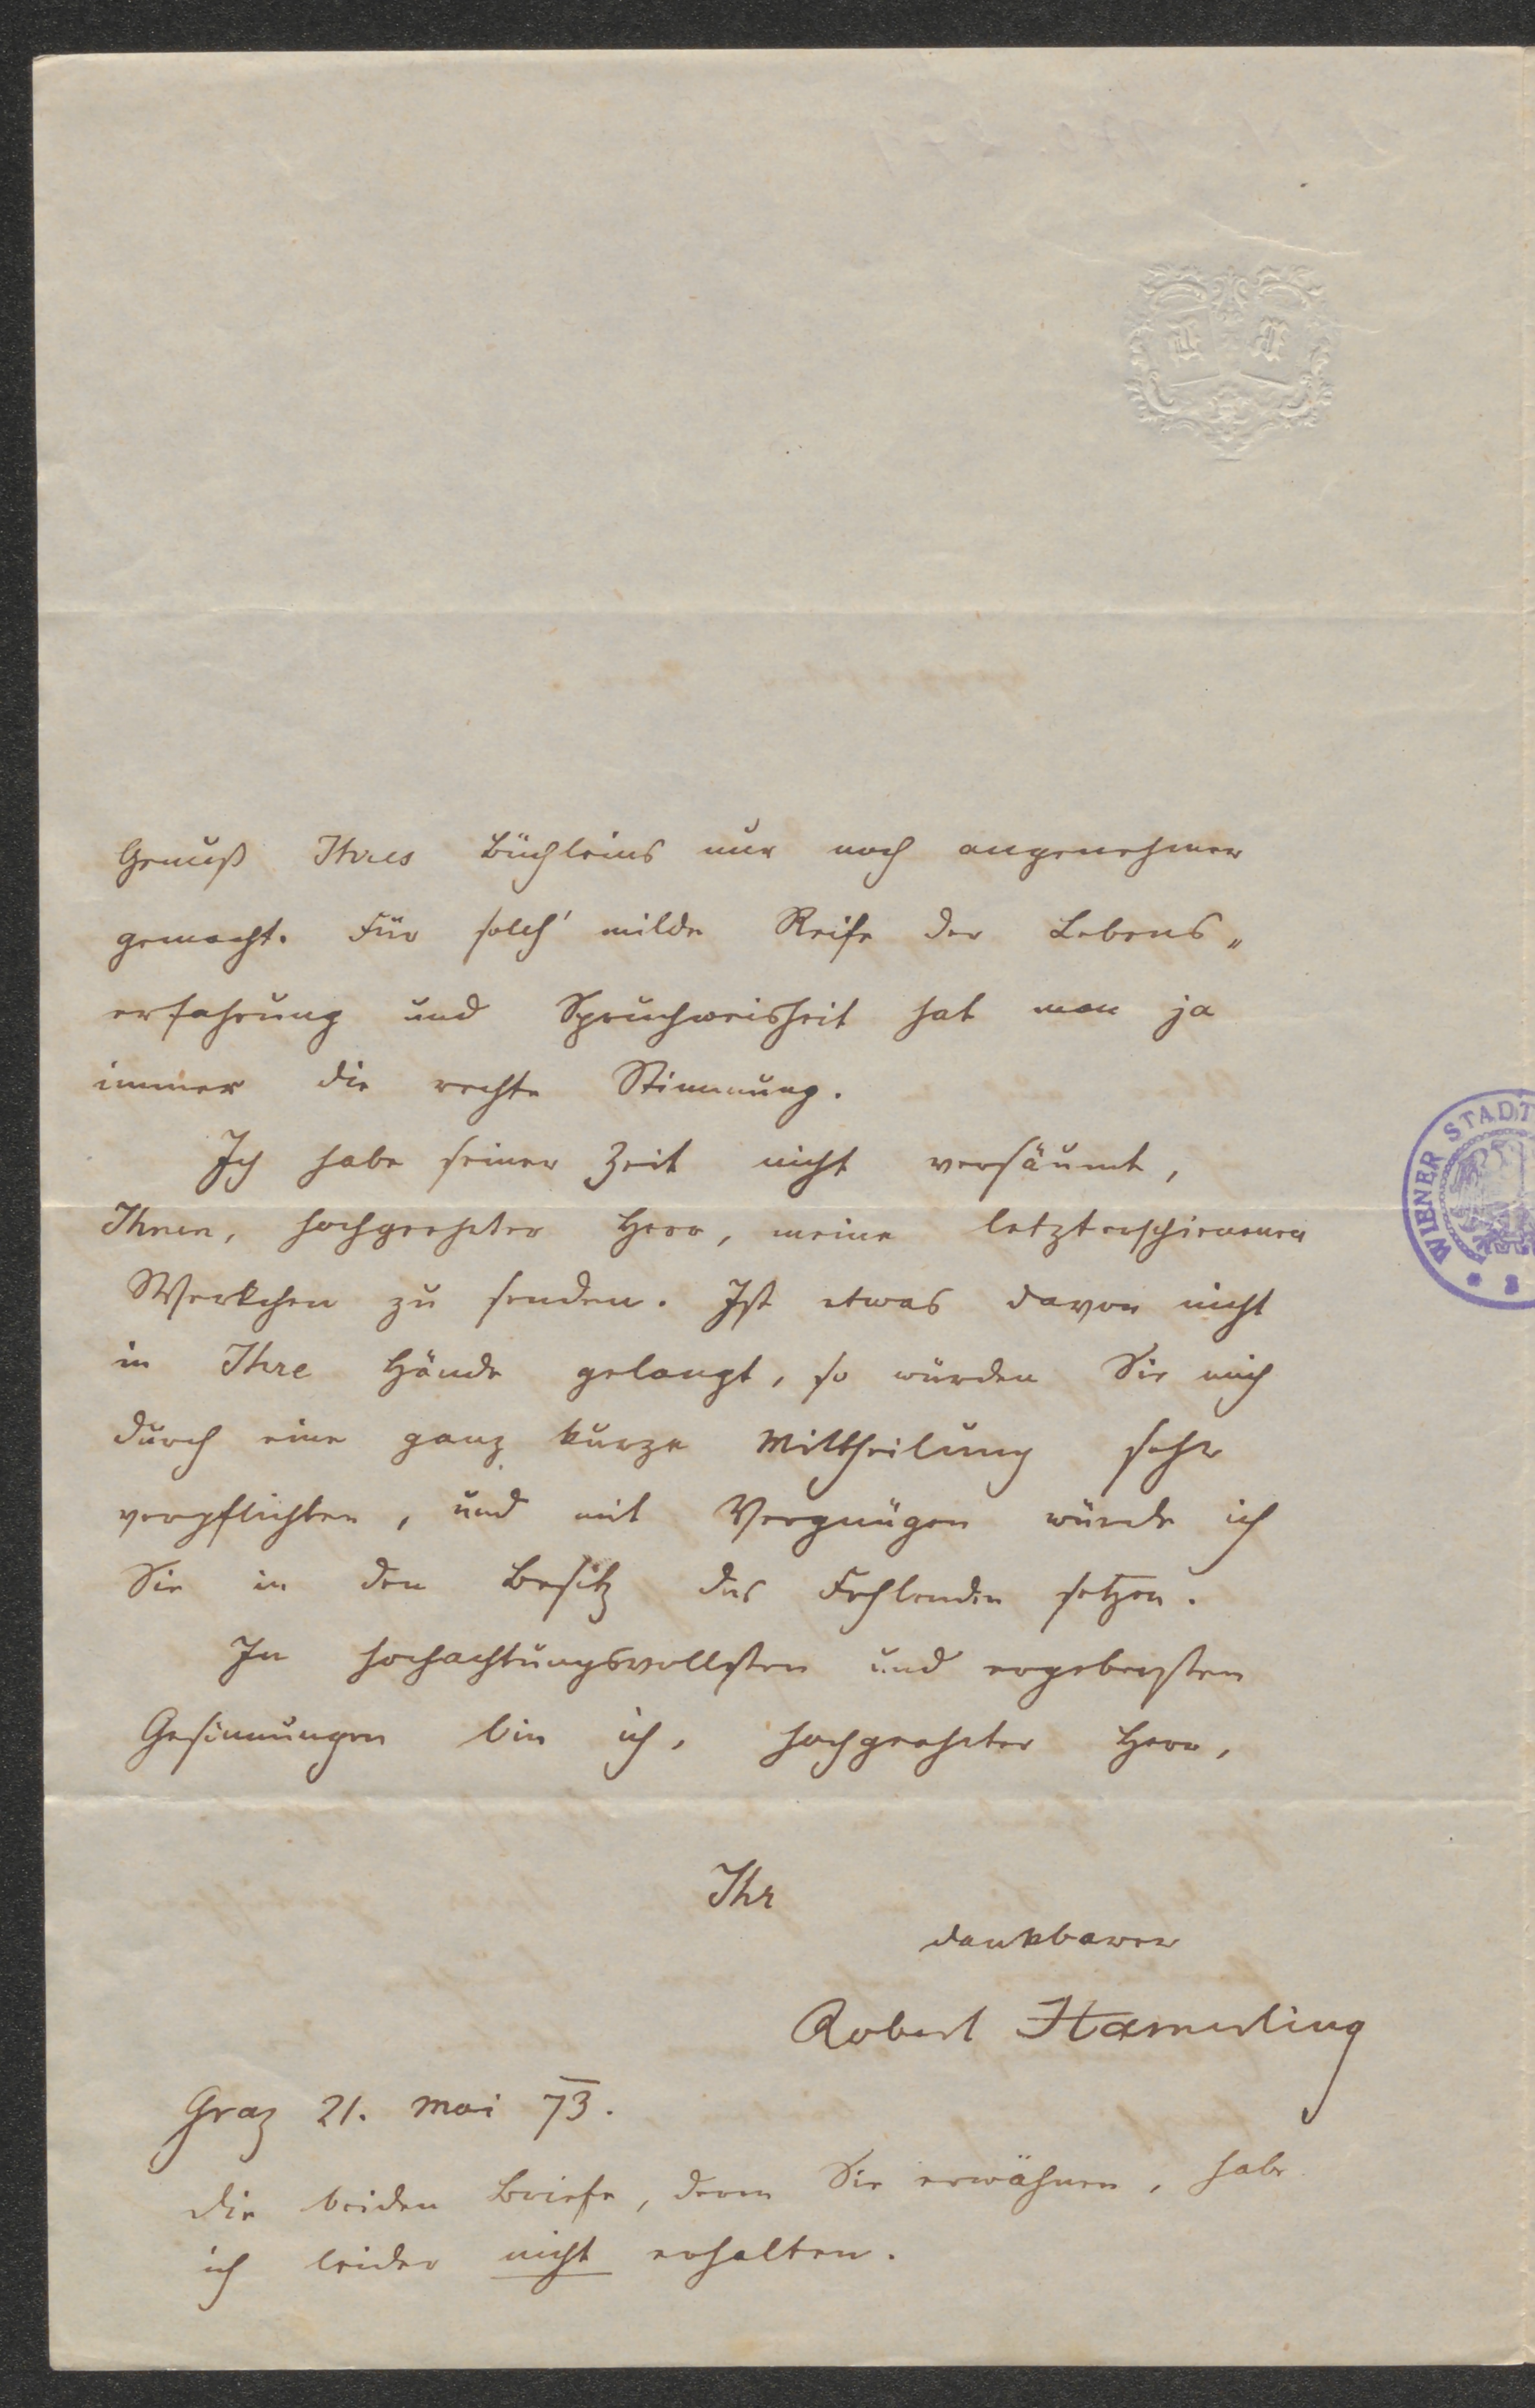 Genuß Ihres Büchleins nur noch angenehmer
gemacht. Für solch' milde Reife der Lebens„
erfahrung und Spruchweisheit hat man ja
immer die rechte Stimmung.
Ich habe seiner Zeit nicht versäumt,
Ihnen, hochgeehrter Herr, meine letzterschienenen
Werkchen zu senden. Ist etwas davon nicht
in Ihre Hände gelangt, so würden Sie mich
durch eine ganz kurze Mittheilung sehr
verpflichten, und mit Vergnügen würde ich
Sie in den Besitz des Fehlenden setzen.
In hochachtungsvollsten und ergebensten
Gesinnungen bin ich, hochgeehrter Herr,
Ihr
dankbarer
Robert Hamerling
Graz 21. Mai 73.
Die beiden Briefe, deren Sie erwähnen, habe
ich leider nicht erhalten.
WIENER STADT